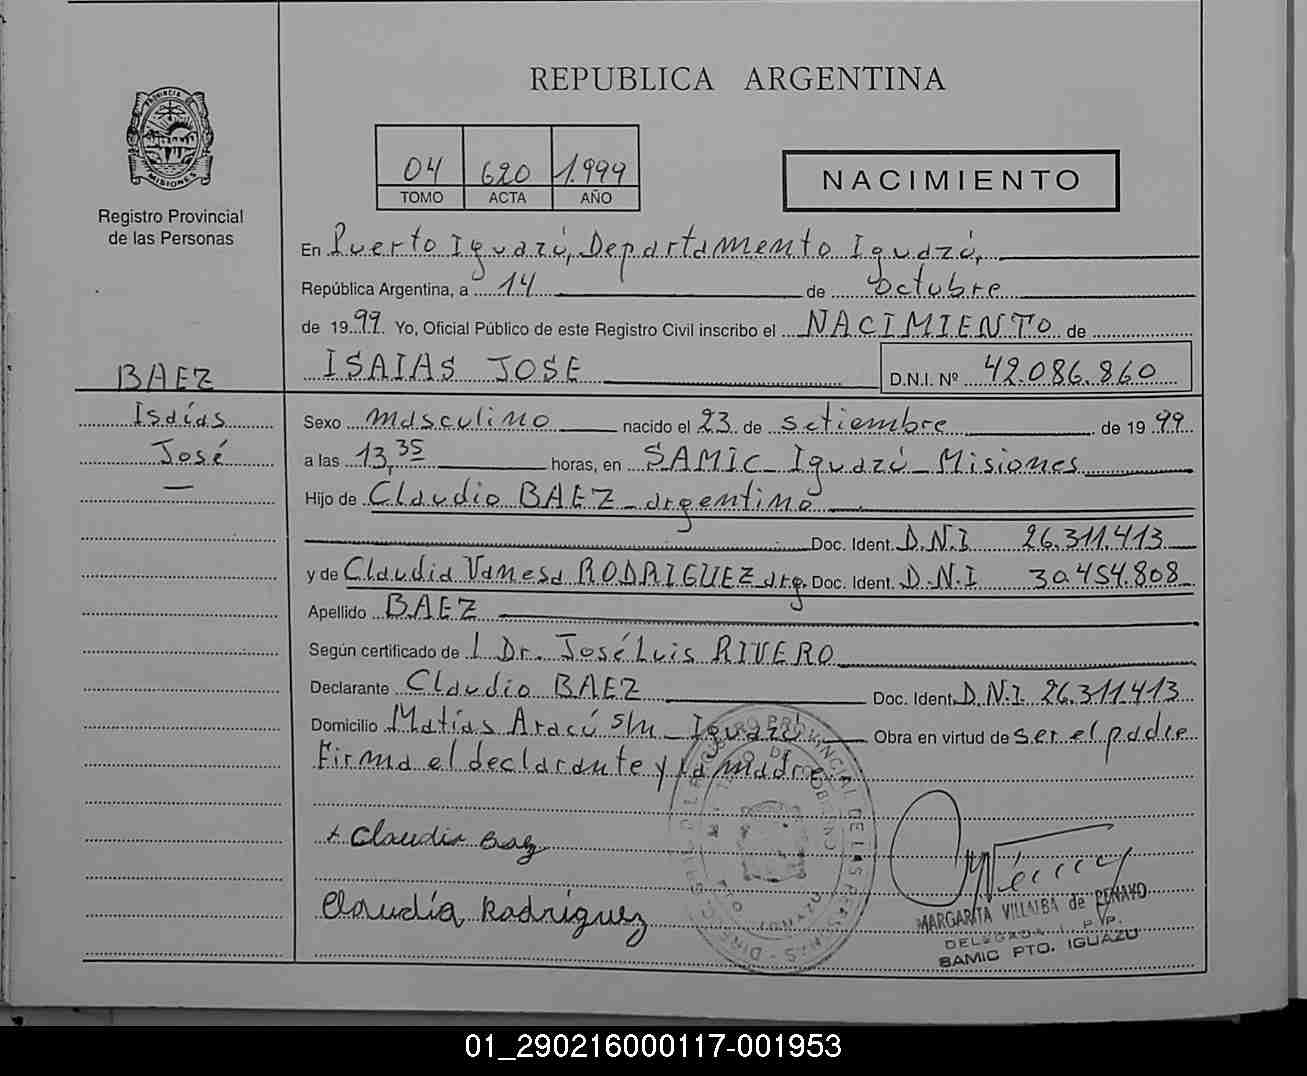 REPUBLICA ARGENTINA
PROVINCIA DE
MISIONES
Registro Provincial
de las Personas
04 620 1.999
TOMO ACTA AÑO
NACIMIENTO
En Puerto Iguazú, Departamento Iguazú,
República Argentina, a 14 de octubre
de 1999 Yo, Oficial Público de este Registro Civil inscribo el NACIMIENTO de
ISAIAS JOSE D.N.I. Nº 42.086.860
BAEZ
Isaías
José
Sexo masculino nacido el 23 de setiembre de 1999
a las 13,35 horas, en SAMIC - Iguazú - Misiones
Hijo de Claudio BAEZ - argentino
Doc. Ident. D.N.I 26.311.413
y de Claudia Vanesa RODRIGUEZ arg. Doc. Ident. D.N.I 30.454.808
Apellido BAEZ
Según certificado de l Dr. José Luis RIVERO
Declarante Claudio BAEZ Doc. Ident. D.N.I 26.311.413
Domicilio Matías Aracú s/n - Iguazú Obra en virtud de ser el padre
Firma el declarante y la madre
Claudio Baez
Claudía Rodríguez
MARGARITA VILLALBA de PENAYO
DELEGADA R.P.P.
SAMIC PTO. IGUAZU
01_290216000117-001953